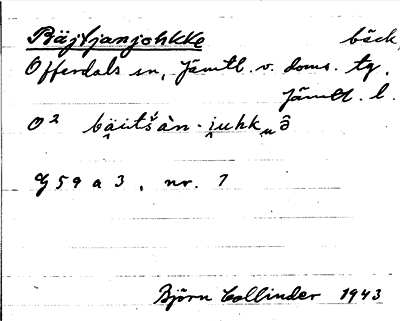 Bäjtjanjohkke bäck,
Offerdals sn, Jämtl. v. doms. tg.
Jämtl. l.
O² bäi̭tšàn-i̭uhkᵤô
G 59 a 3, nr. 7
Björn Collinder 1943